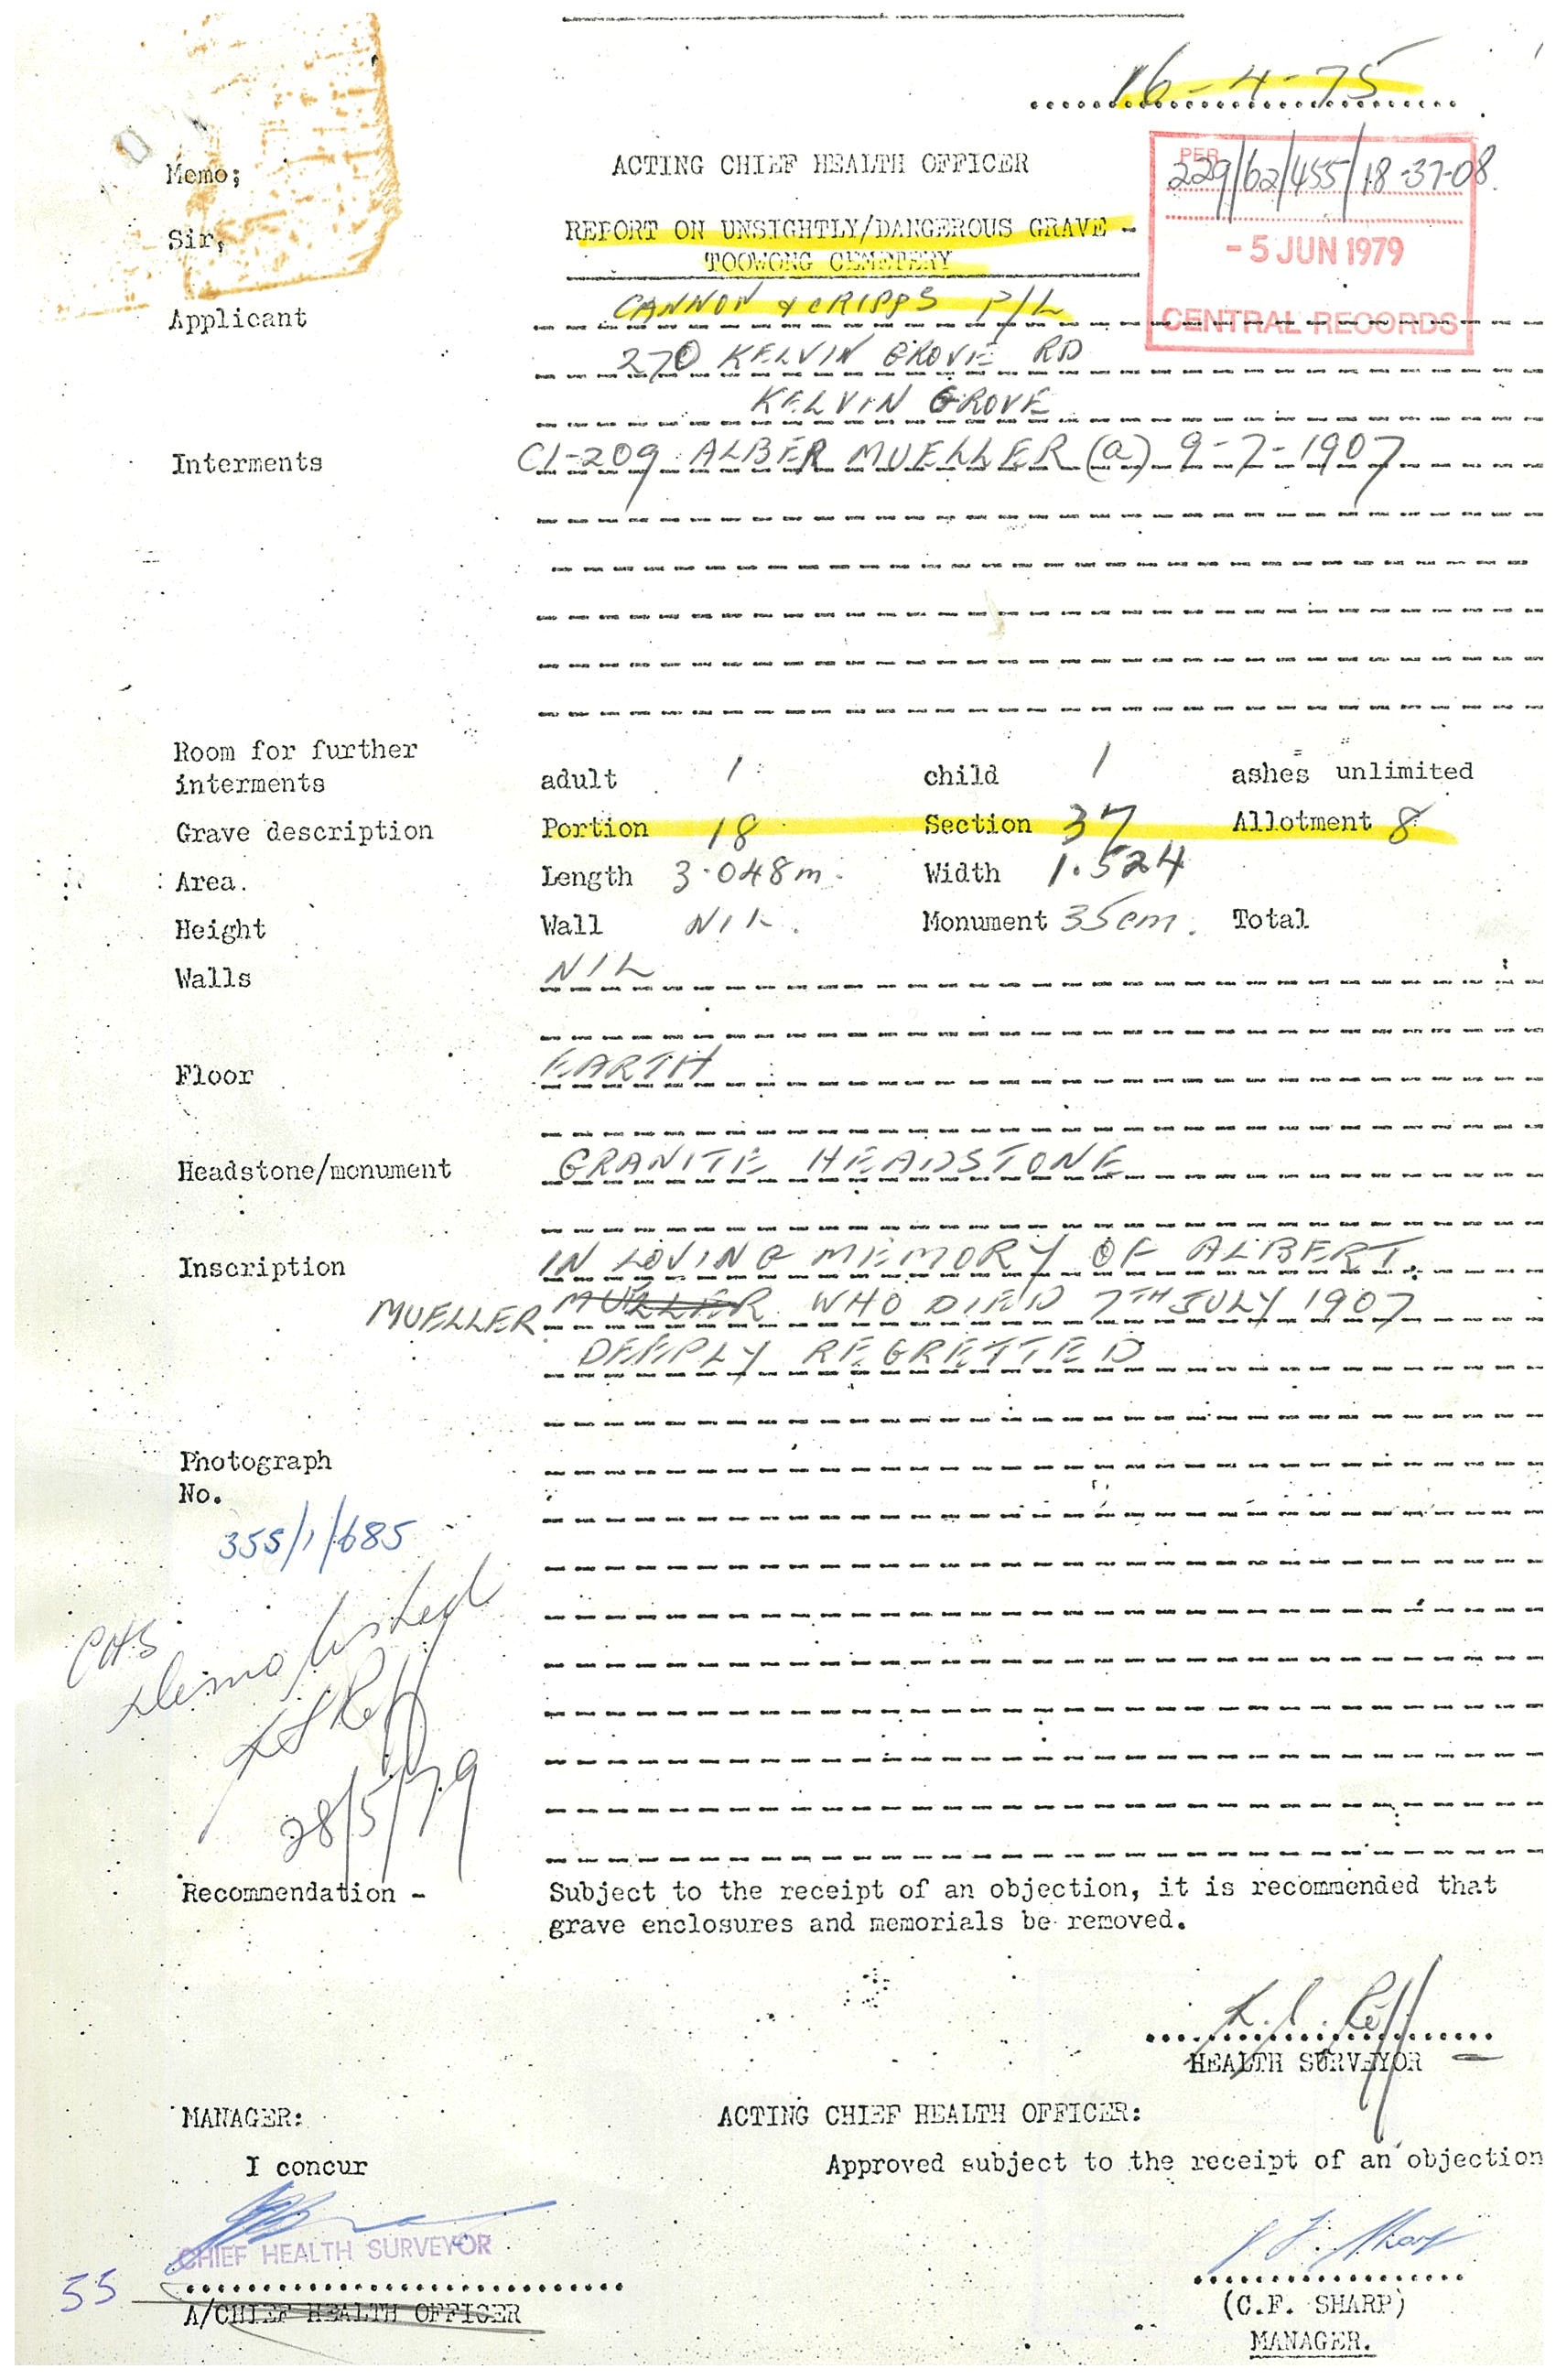 16-4-75
Memo;
ACTING CHIEF HEALTH OFFICER
PER
229/62/455/18-37-08.
Sir,
REPORT ON UNSIGHTLY/DANGEROUS GRAVE -
TOOWONG CEMETERY
- 5 JUN 1979
CENTRAL RECORDS
Applicant CANNON & CRIPPS P/L
270 KELVIN GROVE RD
KELVIN GROVE
Interments C1-209 ALBER MUELLER (a) 9-7-1907
Room for further
interments adult 1 child 1 ashes unlimited
Grave description Portion 18 Section 37 Allotment 8
Area. Length 3.048m. Width 1.524
Height Wall NIL. Monument 35cm. Total
Walls NIL
Floor EARTH
Headstone/monument GRANITE HEADSTONE
Inscription IN LOVING MEMORY OF ALBERT.
MUELLER. MULLER WHO DIED 7TH JULY 1907
DEEPLY REGRETTED
Photograph
No.
355/1/685
CHS
Demolished
28/5/79
Recommendation - Subject to the receipt of an objection, it is recommended that
grave enclosures and memorials be removed.
HEALTH SURVEYOR
MANAGER: ACTING CHIEF HEALTH OFFICER:
I concur Approved subject to the receipt of an objection
CHIEF HEALTH SURVEYOR
55
A/CHIEF HEALTH OFFICER
(C.F. SHARP)
MANAGER.